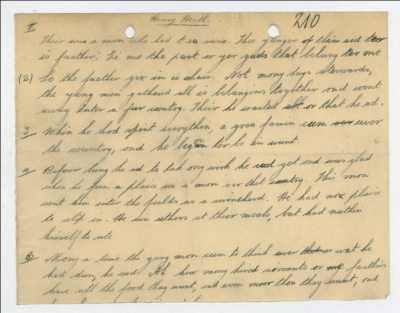 Henry Heath. 210
I
Their was a mon who had two sons. The yonger of them sed ter
is faather: Gi me the part or yer guds that belung ter me
(2) So the faather giv im is shair. Not mony days afterwards,
the yung mon gathered all is belongins together and went
away enter a fur country. Their he wasted all or that he ad.
3 When he had spent everythin, a grea famin cum over
the country, and he begun ter be in want.
4 Befoor lung he ad to tak ony wirk he cud get, and was glad
when he fun a plaice wi a mon over that country. This mon
sent him enter the fields as a swineherd. He had nox plaice
to slip in. He sin uthers at their meals, but had nuthin
himself to ate.
5 Mony a time the yung mon cum to think over wat he
had dun, he sed Ah how mony hired sarvants or me faathers
have all the food they want, and even moor than they want, and